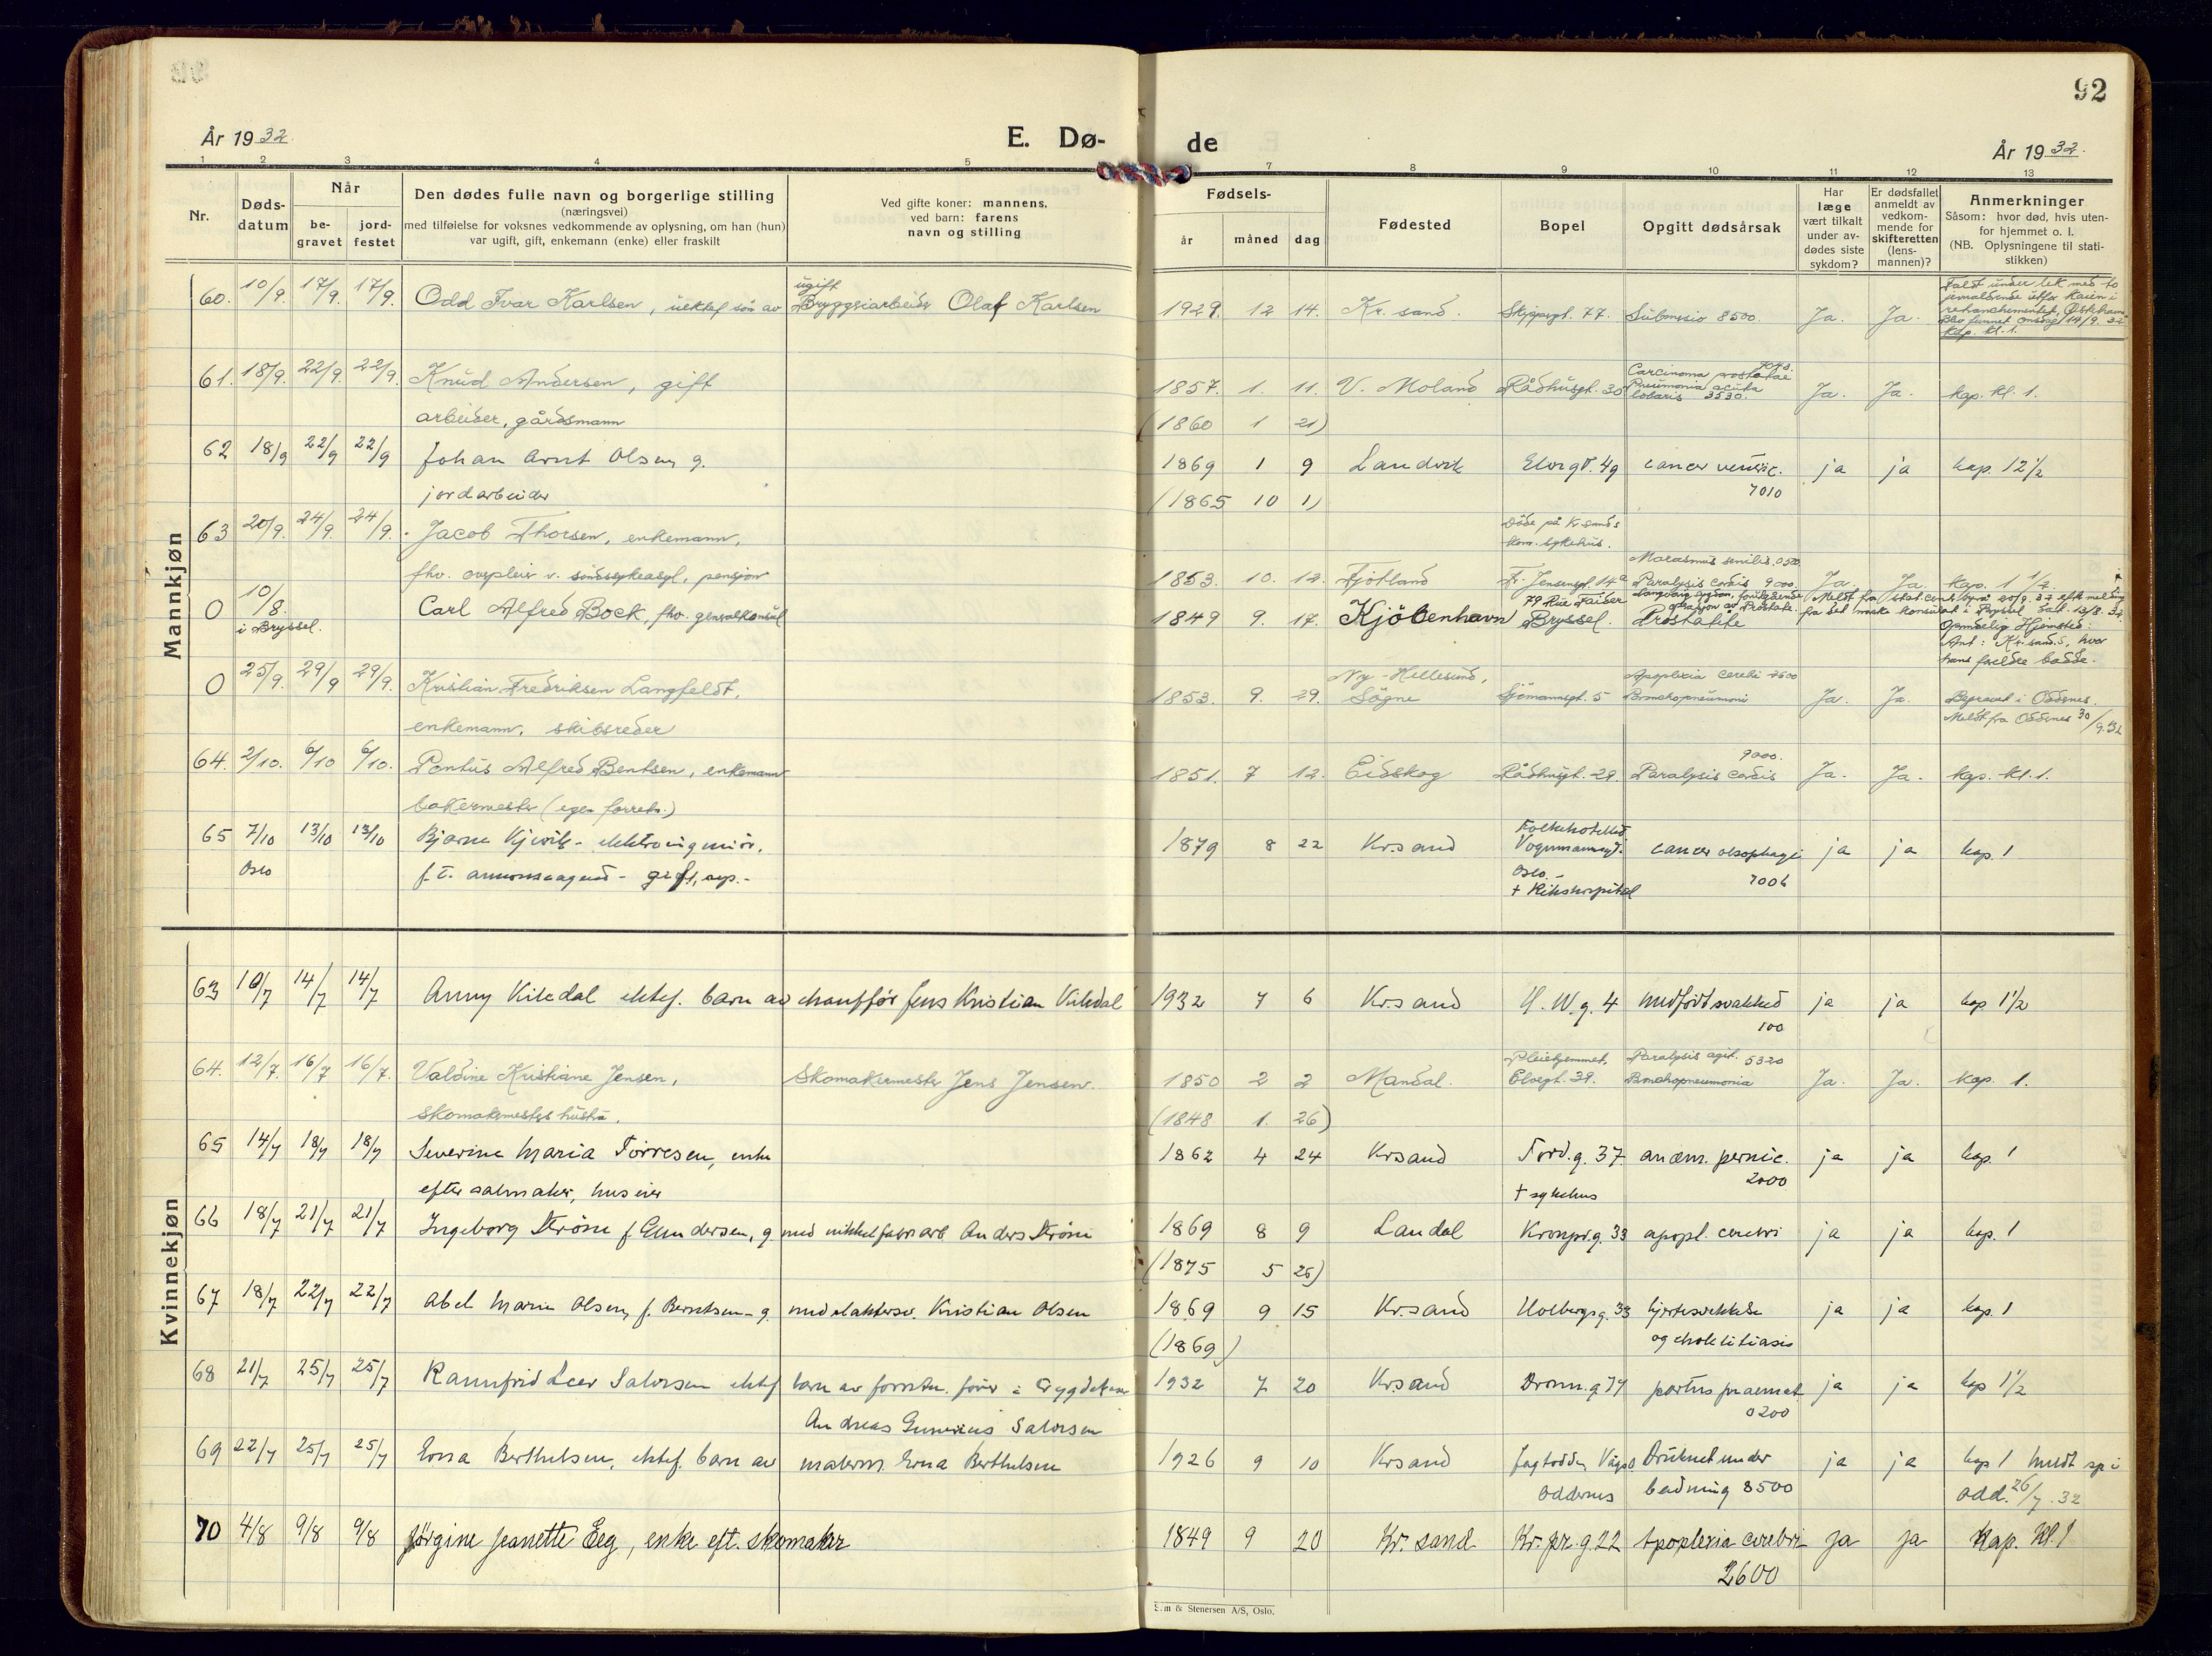 92
År 1932.
E. Dø-
de
År 1932.
1 2 3 4 5 7 8 9 10 11 12 13
Nr.
Døds-
datum
Når
be-
gravet
jord-
festet
Den dødes fulle navn og borgerlige stilling
(næringsvei)
med tilføielse for voksnes vedkommende av oplysning, om han (hun)
var ugift, gift, enkemann (enke) eller fraskilt
Ved gifte koner: mannens,
ved barn: farens
navn og stilling
Fødsels-
år måned dag
Fødested
Bopel
Opgitt dødsårsak
Har
læge
vært tilkalt
under av-
dødes siste
sykdom?
Er dødsfallet
anmeldt av
vedkom-
mende for
skifteretten
(lens-
mannen)?
Anmerkninger
Såsom: hvor død, hvis uten-
for hjemmet o. l.
(NB. Oplysningene til stati-
stikken)
Mannkjøn
60. 10/9. 17/9. 17/9. Odd Ivar Karlsen, uektef. søn av
ugift
Bryggeriarbeider Olaf Karlsen
1929. 12 14. Kr. sand. Skippergt. 77. Submersio 8500. Ja. Ja.
Faldt under lek med to
jevnaldrende utfor kaien i
Blev funnet onsdag 14/9. 32
kap. kl. 1.
61. 18/9. 22/9. 22/9. Knud Andersen, gift
arbeider, gårdsmann
1857. 1. 11. V. Moland Rådhusgt. 30
7040.
Carcinoma prostatae
Pneumonia acuta
lobaris 3530.
Ja. Ja. kap. kl. 1.
(1860 1 21)
62 18/9 22/9 22/9 Johan Arnt Olsen, g.
jordarbeider
1869 1 9 Landvik Elvegt. 49 cancer ventric.
7010
ja ja kap. 12 1/2
(1865 10 1)
63 20/9. 24/9. 24/9. Jacob Thorsen, enkemann,
fhv. overpleier v. sindssykeasyl, pensjon
Døde på Kr.sands
kom. sykehus.
1853. 10. 12. Fjotland Fr. Jensensgt. 14a
Marasmus senilis. 0520
Paralysis cordis 9000.
Ja. Ja. Kap. 1 1/2.
0 10/8.
i Bryssel.
Carl Alfred Bock, fhv. generalkonsul
1849 9. 17. Kjöbenhavn
79 Rue Faider
Bryssel.
operasjon av Prostata.
Prostatite
Meldt fra stat. cent. byrå 20/9. 32 efter melding
fra det norske konsulat i Bryssel dat. 13/8. 32.
Oprindelig Hjemsted:
Ant: Kr.sand. S, hvor
hans foreldre bodde.
0 25/9. 29/9 29/9. Kristian Fredriksen Langfeldt,
enkemann, skibsreder
1853. 9. 29.
Ny-Hellesund,
Søgne
Sjömannsgt. 5
Apoplexia cerebri 2600
Bronchopneumoni
Ja. Ja. Begravet i Oddernes.
Meldt fra Oddernes 30/9.32
64. 2/10. 6/10 6/10. Pontus Alfred Bentsen, enkemann
bakermester (egen forretn.)
1851. 7 12. Eidskog Rådhusgt. 29.
9000.
Paralysis cordis
Ja. Ja. Kap. kl. 1.
65 7/10 13/10 13/10 Bjarne Kjevik - elektroingeniør,
Oslo
f. t. annonseagent - gift, sep. -
1879 8 22 Krsand
Folkehotellet
Vognmannsgt.
Oslo. -
+ Rikshospital
cancer oesophagi
7006
ja ja kap. 1
Kvinnekjøn
63 10/7 14/7 14/7 Anny Kiledal ektef. barn av chauffør Jens Kristian Kiledal
1932 7 6 Krsand H. W. g. 4 medfødt svakhed
100
ja ja kap 1 1/2
64. 12/7. 16/7 16/7. Valdine Kristiane Jensen,
skomakermesters hustru.
Skomakermester Jens Jensen.
1850 2 2 Mandal.
Pleiehjemmet,
Elvegt. 39.
Paralysis agit. 5320
Bronchopneumonia
Ja. Ja. Kap. 1.
(1848 1. 26)
65 14/7 18/7 18/7 Severine Maria Torresen, enke
efter salmaker, huseier
1862 4 24 Krsand Tord. g. 37
+ sykehus
anæm. pernic.
2000
ja ja kap. 1
66 18/7 21/7 21/7 Ingeborg Strøm f. Gundersen, g med nikkelfabr.arb Anders Strøm
1869 8 9 Landal Kronpr.g. 33 apopl. cerebri ja ja kap. 1
(1875 5 25)
67 18/7 22/7 22/7 Abel Marie Olsen, f. Berntsen - g. med slakterm. Kristian Olsen
1869 9 15 Kr.sand Holbergsg. 33 hjertesvekkelse
og cholelitiasis
ja ja kap. 1
(1869)
68 21/7 25/7 25/7 Rannfrid Leer Salvesen ektef barn av forretn. fører i Trygdekasse
Andreas Gunerius Salvesen
1932 7 20 Krsand Dronn. g 74 partus praemat.
0200
ja ja kap 1 1/2
69 22/7 25/7 25/7 Erna Berthelsen, ektef. barn av malerm. Erna Berthelsen
1926 9 10 Krsand Jegtodden, Vågsb.
Oddernes
Druknet under
badning 8500
ja ja kap 1 meldt sp i
Odd. 26/7. 32
70 4/8 9/8 9/8 Jørgine Jeanette Eeg, enke eft. skomaker
1849 9 20 Kr. sand Kr. pr. g. 22 Apoplexia cerebri
2600
ja ja Kap. kl. 1
& Stenersen A/S, Oslo.